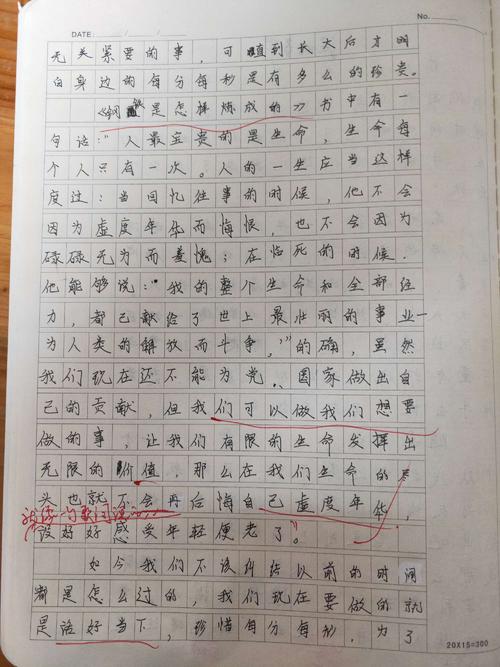 No.
DATE: / /
无关紧要的事，可直到长大后才明
白身边的每分每秒是有多么的珍贵。
《钢铁是怎样炼成的》书中有一
句话："人最宝贵的是生命，生命每
个人只有一次。人的一生应当这样
度过：当回忆往事的时候，他不会
因为虚度年华而悔恨，也不会因为
碌碌无为而羞愧；在临死的时候，
他能够说："我的整个生命和全部经
力，都已献给了世上最壮丽的事业—
为人类的解放而斗争，"的确，虽然
我们现在还不能为党、国家做出自
己的贡献，但我们可以做我们想要
做的事，让我们有限的生命发挥出
无限的价值，那么在我们生命的尽
头也就不会再后悔自己虚度年华，
没好好感受年轻便老了。
如今我们不该纠结以前的时间
都是怎么过的，我们现在要做的就
是活好当下，珍惜每分每秒，为了
20X15=300